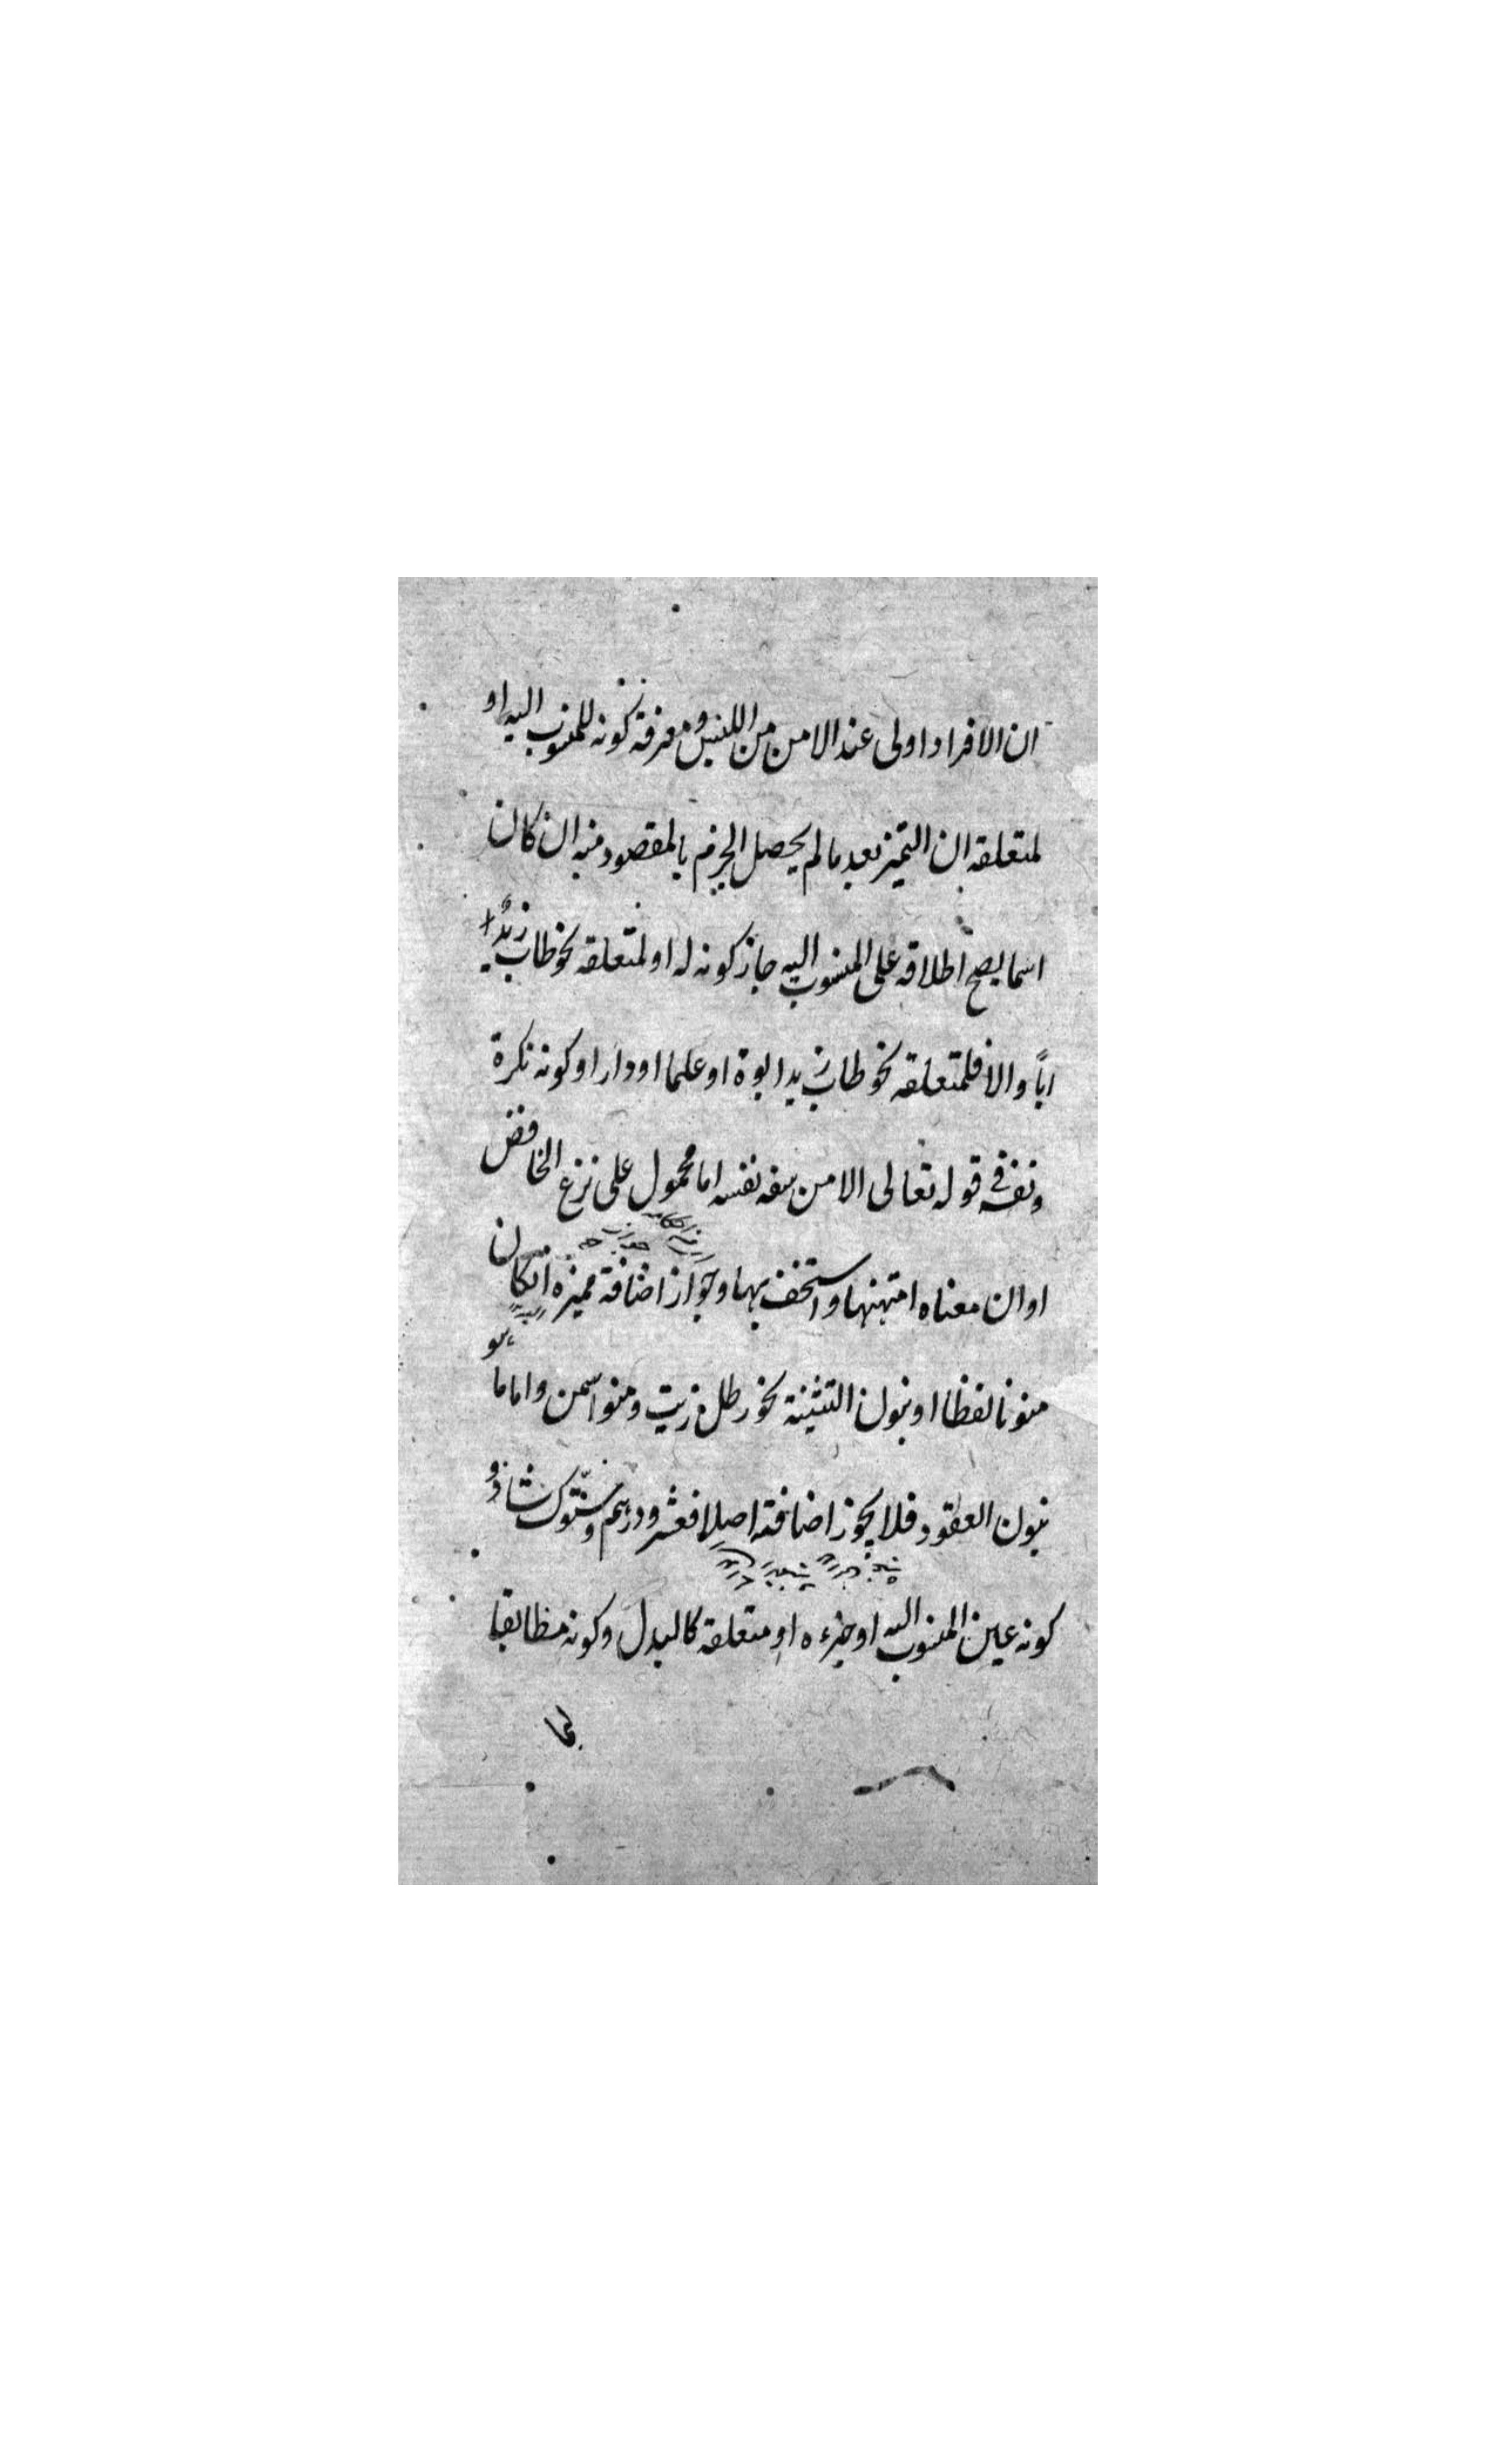 ان الافراد اولى عند الامن من اللبس و معرفة كونه للمنسوب اليه او
لمتعلقه ان التميز بعد ما لم يحصل الجزم بالمقصود منه ان كان
اسما يصح اطلاقه على المنسوب اليه جاز كونه له او لمتعلقه نحو طاب زيدٌ
اباً و الا فلمتعلقه نحو طاب زيد ابوة او علما او دارا و كونه نكرة
و نفسه في قوله تعالى الا من سفه نفسه اما محمول على نزع الخافض
او ان معناه امتهنها و استخف بها و جواز اضافة مميزه ان كان
منونا لفظا او بنون التثنية نحو رطل زيت و منوا سمن و اما ما هو
بنون العقود فلا يجوز اضافته اصلا فعشرو درهم و ستوك شاذ و
كونه عين المنسوب اليه او جزءه او متعلقه كالبدل و كونه مطابقا
لما